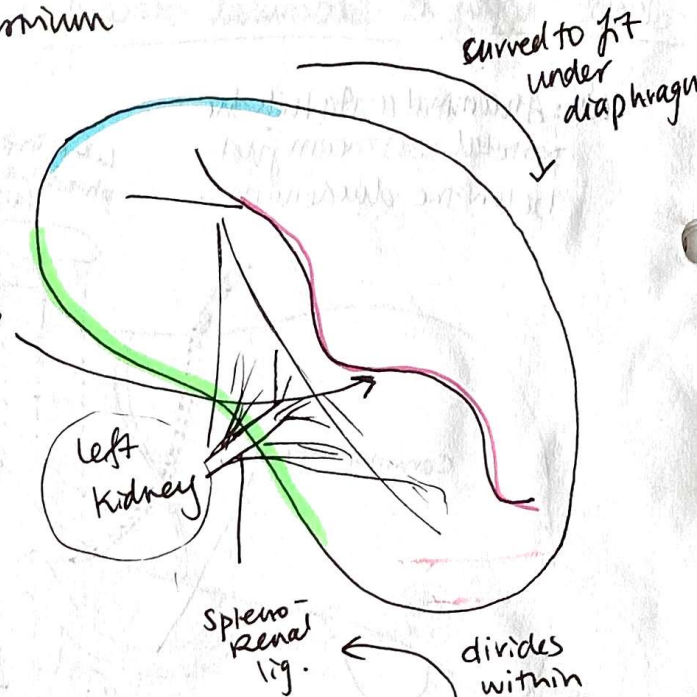 curved to fit
under
left
kidney
spleno-
renal
lig.
divides
within